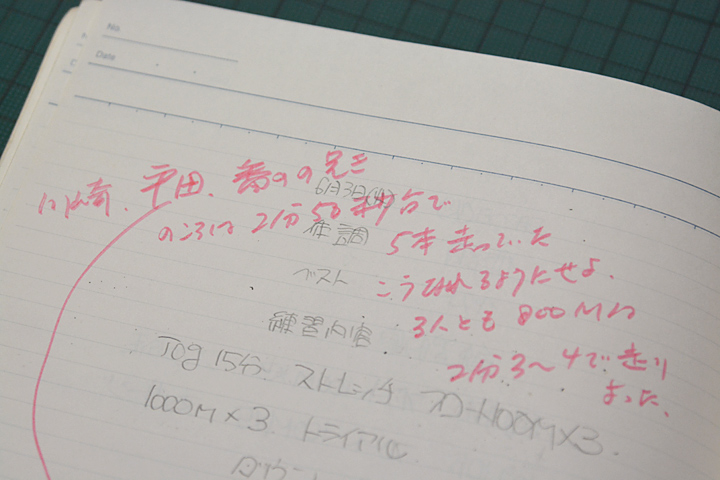 No.
Date
川崎、平田、番のの兄き
6月3日(火)
のころは2分50秒台で
体調
5本走っていた
ベスト
こうなれるようにせよ。
練習内容
3人とも800Mは
Jog 15分 ストレッチ フロート100M×3
2分3〜4で走り
よった。
1000M×3 トライアル
ダウン